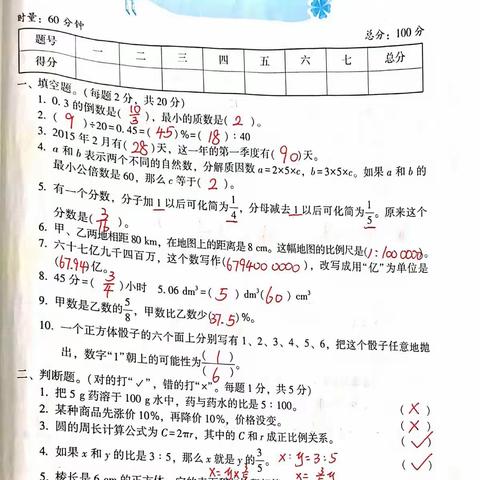 时量：60 分钟
总分：100 分
题号 一 二 三 四 五 六 七 总分
得分
一、填空题。（每题 2 分，共 20 分）
1. 0.3 的倒数是( 10/3 )，最小的质数是( 2 )。
2. ( 9 )÷20=0.45=( 45 )%=( 18 )：40
3. 2015 年 2 月有( 28 )天，这一年的第一季度有( 90 )天。
4. a 和 b 表示两个不同的自然数，分解质因数 a=2×5×c，b=3×5×c。如果 a 和 b 的
最小公倍数是 60，那么 c 等于( 2 )。
5. 有一个分数，分子加 1 以后可化简为 1/4，分母减去 1 以后可化简为 1/5。原来这个
分数是( 3/16 )。
6. 甲、乙两地相距 80 km，在地图上的距离是 8 cm。这幅地图的比例尺是(1:1000000)。
7. 六十七亿九千四百万，这个数写作(6794000000)，改写成用“亿”为单位是
(67.94)亿。
8. 45 分=( 3/4 )小时 5.06 dm³=( 5 )dm³(60)cm³
9. 甲数是乙数的 5/8，甲数比乙数少(37.5)%。
10. 一个正方体骰子的六个面上分别写有 1、2、3、4、5、6，把这个骰子任意地抛
出，数字“1”朝上的可能性为 (1)/(6)。
二、判断题。（对的打“✓”，错的打“×”。每题 1 分，共 5 分）
1. 把 5 g 药溶于 100 g 水中，药与药水的比是 5：100。 (×)
2. 某种商品先涨价 10%，再降价 10%，价格没变。 (×)
3. 圆的周长计算公式为 C=2πr，其中的 C 和 r 成正比例关系。 (✓)
4. 如果 x 和 y 的比是 3：5，那么 x 就是 y 的 3/5。 x:y=3:5 (✓)
5. 棱长是 6 cm 的正方体